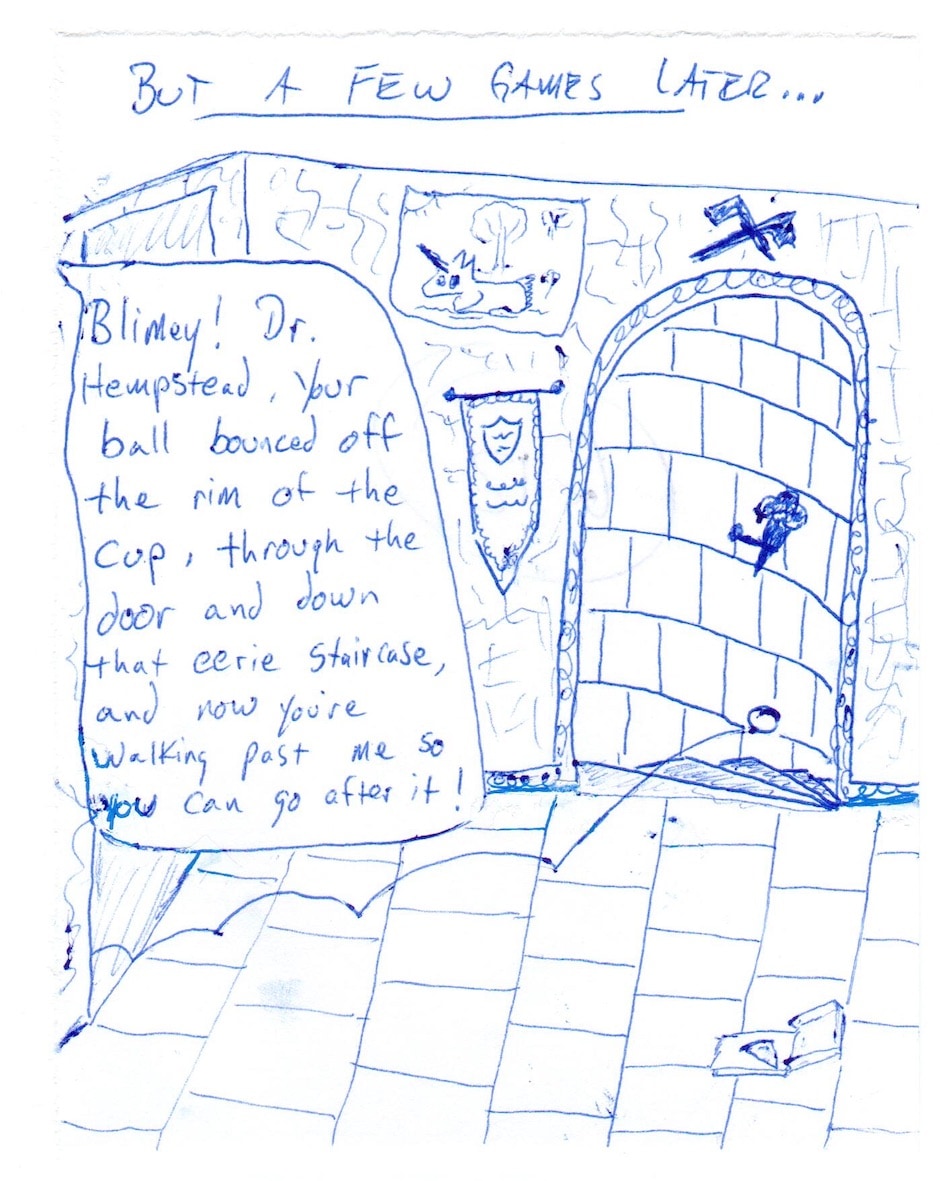 BUT A FEW GAMES LATER...
Blimey! Dr.
Hempstead, your
ball bounced off
the rim of the
cup, through the
door and down
that eerie staircase,
and now you're
walking past me so
you can go after it!